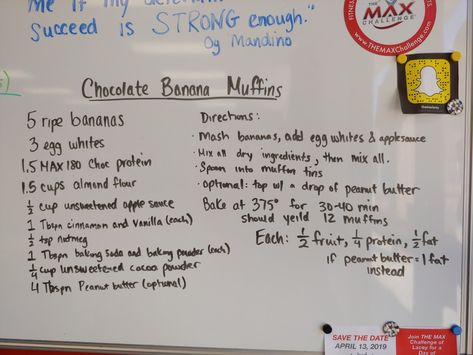 me if my
succeed is STRONG enough."
Og Mandino
THE
MAX
CHALLENGE
www.THEMAXChallenge.com
Chocolate Banana Muffins
5 ripe bananas
3 egg whites
1.5 MAX 180 Choc protein
1.5 cups almond flour
1/2 cup unsweetened apple sauce
1 Tbspn cinnamon and Vanilla (each)
1/2 tsp nutmeg
1 Tbspn baking soda and baking powder (each)
1/4 cup unsweetened cocoa powder
4 Tbspn Peanut butter (optional)
Directions:
· Mash bananas, add egg whites & applesauce
· Mix all dry ingredients, then mix all.
· Spoon into muffin tins
· optional: top w/ a drop of peanut butter
Bake at 375° for 30-40 min
should yeild 12 muffins
Each: 1/2 fruit, 1/4 protein, 1/2 fat
if peanut butter = 1 fat
instead
SAVE THE DATE
APRIL 13, 2019
Join THE MAX
Challenge of
Lacey for a
Day of